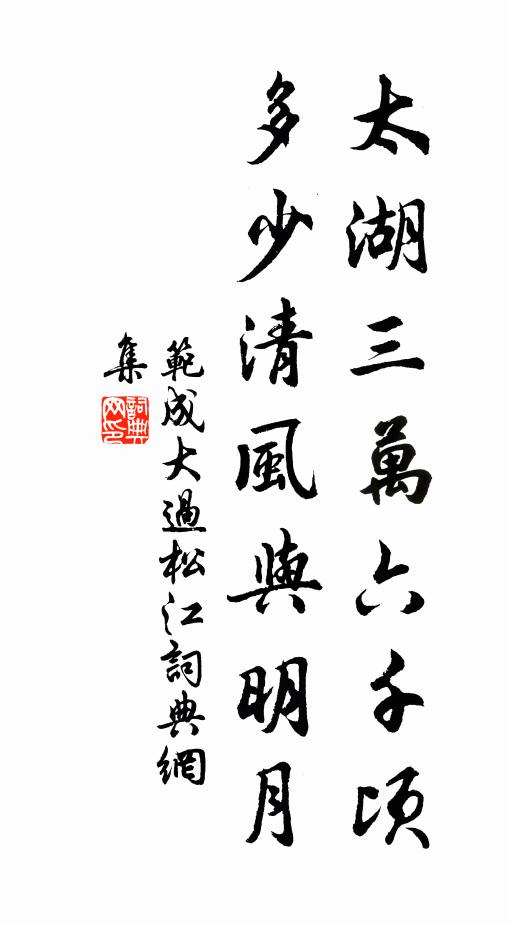 太湖三萬六千頃
多少清風與明月
範成大過松江詞典網
集
詞典
网印